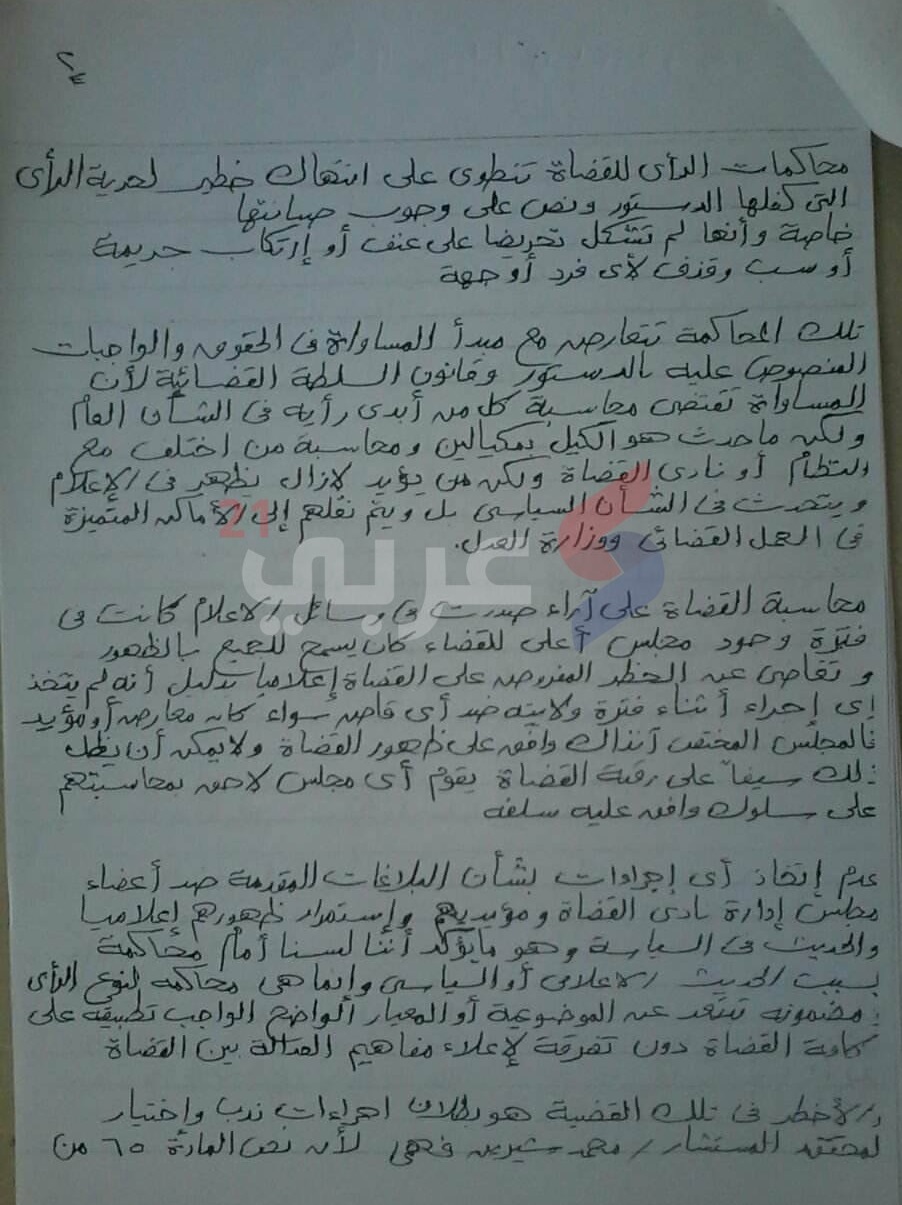 ٢
محاكمات الرأى للقضاة تنطوى على انتهاك خطير لحرية الرأى
التى كفلها الدستور ونص على وجوب صيانتها
خاصة وأنها لم تشكل تحريضا على عنف أو إرتكاب جريمة
أو سب وقذف لأى فرد أو جهة
تلك المحاكمة تتعارض مع مبدأ المساواة فى الحقوق والواجبات
المنصوص عليه بالدستور وقانون السلطة القضائية لأن
المساواة تقتضى محاسبة كل من أبدى رأيه فى الشأن العام
ولكن ماحدث هو الكيل بمكيالين ومحاسبة من اختلف مع
النظام أو نادى القضاة ولكن من يؤيد لازال يظهر فى الإعلام
ويتحدث فى الشأن السياسى بل ويتم نقلهم إلى الأماكن المتميزة
فى العمل القضائى ووزارة العدل.
21 عربي
محاسبة القضاة على آراء صدرت فى وسائل الاعلام كانت فى
فترة وجود مجلس أعلى للقضاء كان يسمح للجميع بالظهور
وتغاضى عن الحظر المفروض على القضاة إعلاميا بدليل أنه لم يتخذ
اى إجراء أثناء فترة ولايته ضد أى قاض سواء كان معارض أو مؤيد
فالمجلس المختص آنذاك وافق على ظهور القضاة ولا يمكن أن يظل
ذلك سيفاً على رقبة القضاة يقوم أى مجلس لاحق بمحاسبتهم
على سلوك وافق عليه سلفه
عدم إتخاذ أى إجراءات بشأن البلاغات المقدمة ضد أعضاء
مجلس إدارة نادى القضاة ومؤيديهم وإستمرار ظهورهم إعلاميا
والحديث فى السياسة وهو مايؤكد أننا لسنا أمام محاكمة
بسبب الحديث الاعلامى أو السياسى وانما هى محاكمه لنوع الرأى
ومضمونه تبتعد عن الموضوعية أو المعيار الواضح الواجب تطبيقه على
كافة القضاة دون تفرقة لإعلاء مفاهيم العدالة بين القضاة
والأخطر فى تلك القضية هو بطلان اجراءات ندب واختيار
المحقق المستشار / محمد شيرين فهمى لأن نص المادة ٦٥ من